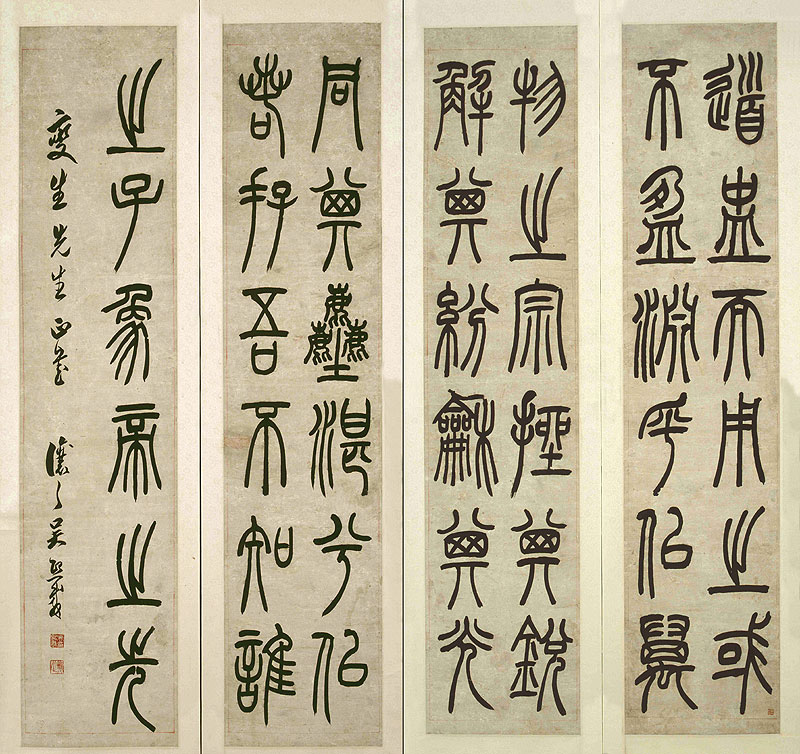 道盅而用之或
不盈淵乎佀萬
物之宗挫其銳
解其紛龢其光
同其塵湛兮佀
若存吾不知誰
之子象帝之先
生先生正 讓之吳熙載